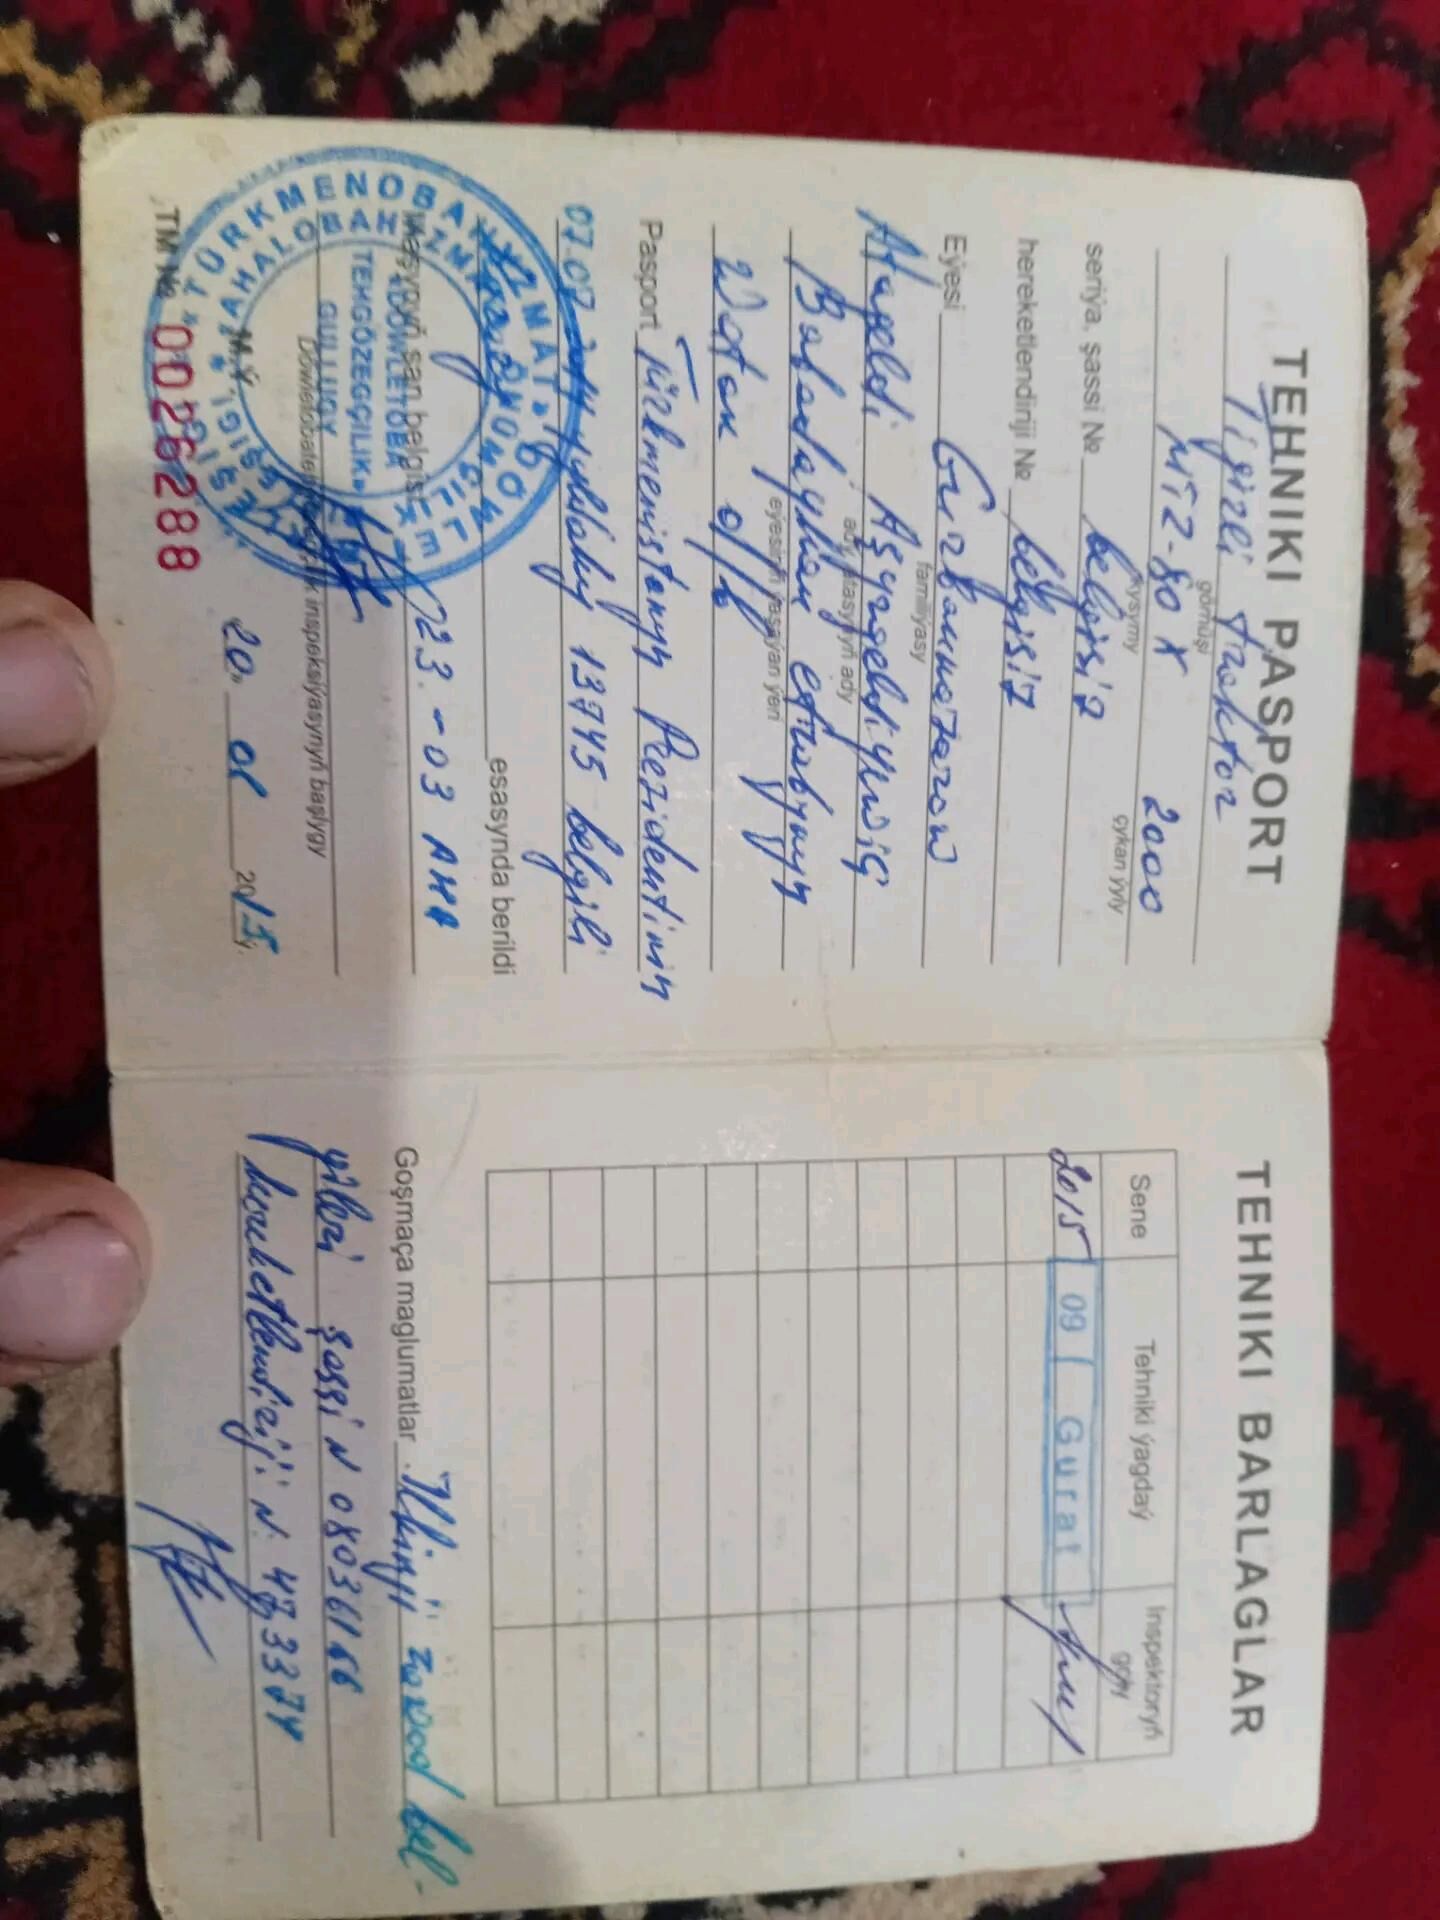 TEHNIKI PASPORT
Tigirli traktor
görnüşi
MTZ-80 X 2000
kysymy
çykan ýyly
seriýa, şassi № belgisiz
hereketlendiriji № belgisiz
Eýesi Gurbannazarow
familiýasy
Atageldi Aşyrgeldiýewiç
ady, atasynyň ady
Babadaýhan etrabynyň
eýesiniň ýaşaýan ýeri
Watan o/b
Pasport Türkmenistanyň Prezidentiniň
07.07. ýyldaky 13745 belgili
esasynda berildi
Maşynyň san belgisi 23.-03 AHA
Döwletobatehgözegçilik inspeksiýasynyň başlygy
M.Ý.
20. 01 2015ý.
TM № 0026288
TÜRKMENOBAHYZMAT
DÖWLETOBA
TEHGÖZEGÇILIK
GULLUGY
TEHNIKI BARLAGLAR
Sene
Tehniki ýagdaý
Inspektoryň goly
2015 09 Gurat
Goşmaça maglumatlar Ilkinji zawod bel-
gileri şassi N 08036166
hereketlendiriji N. 473374